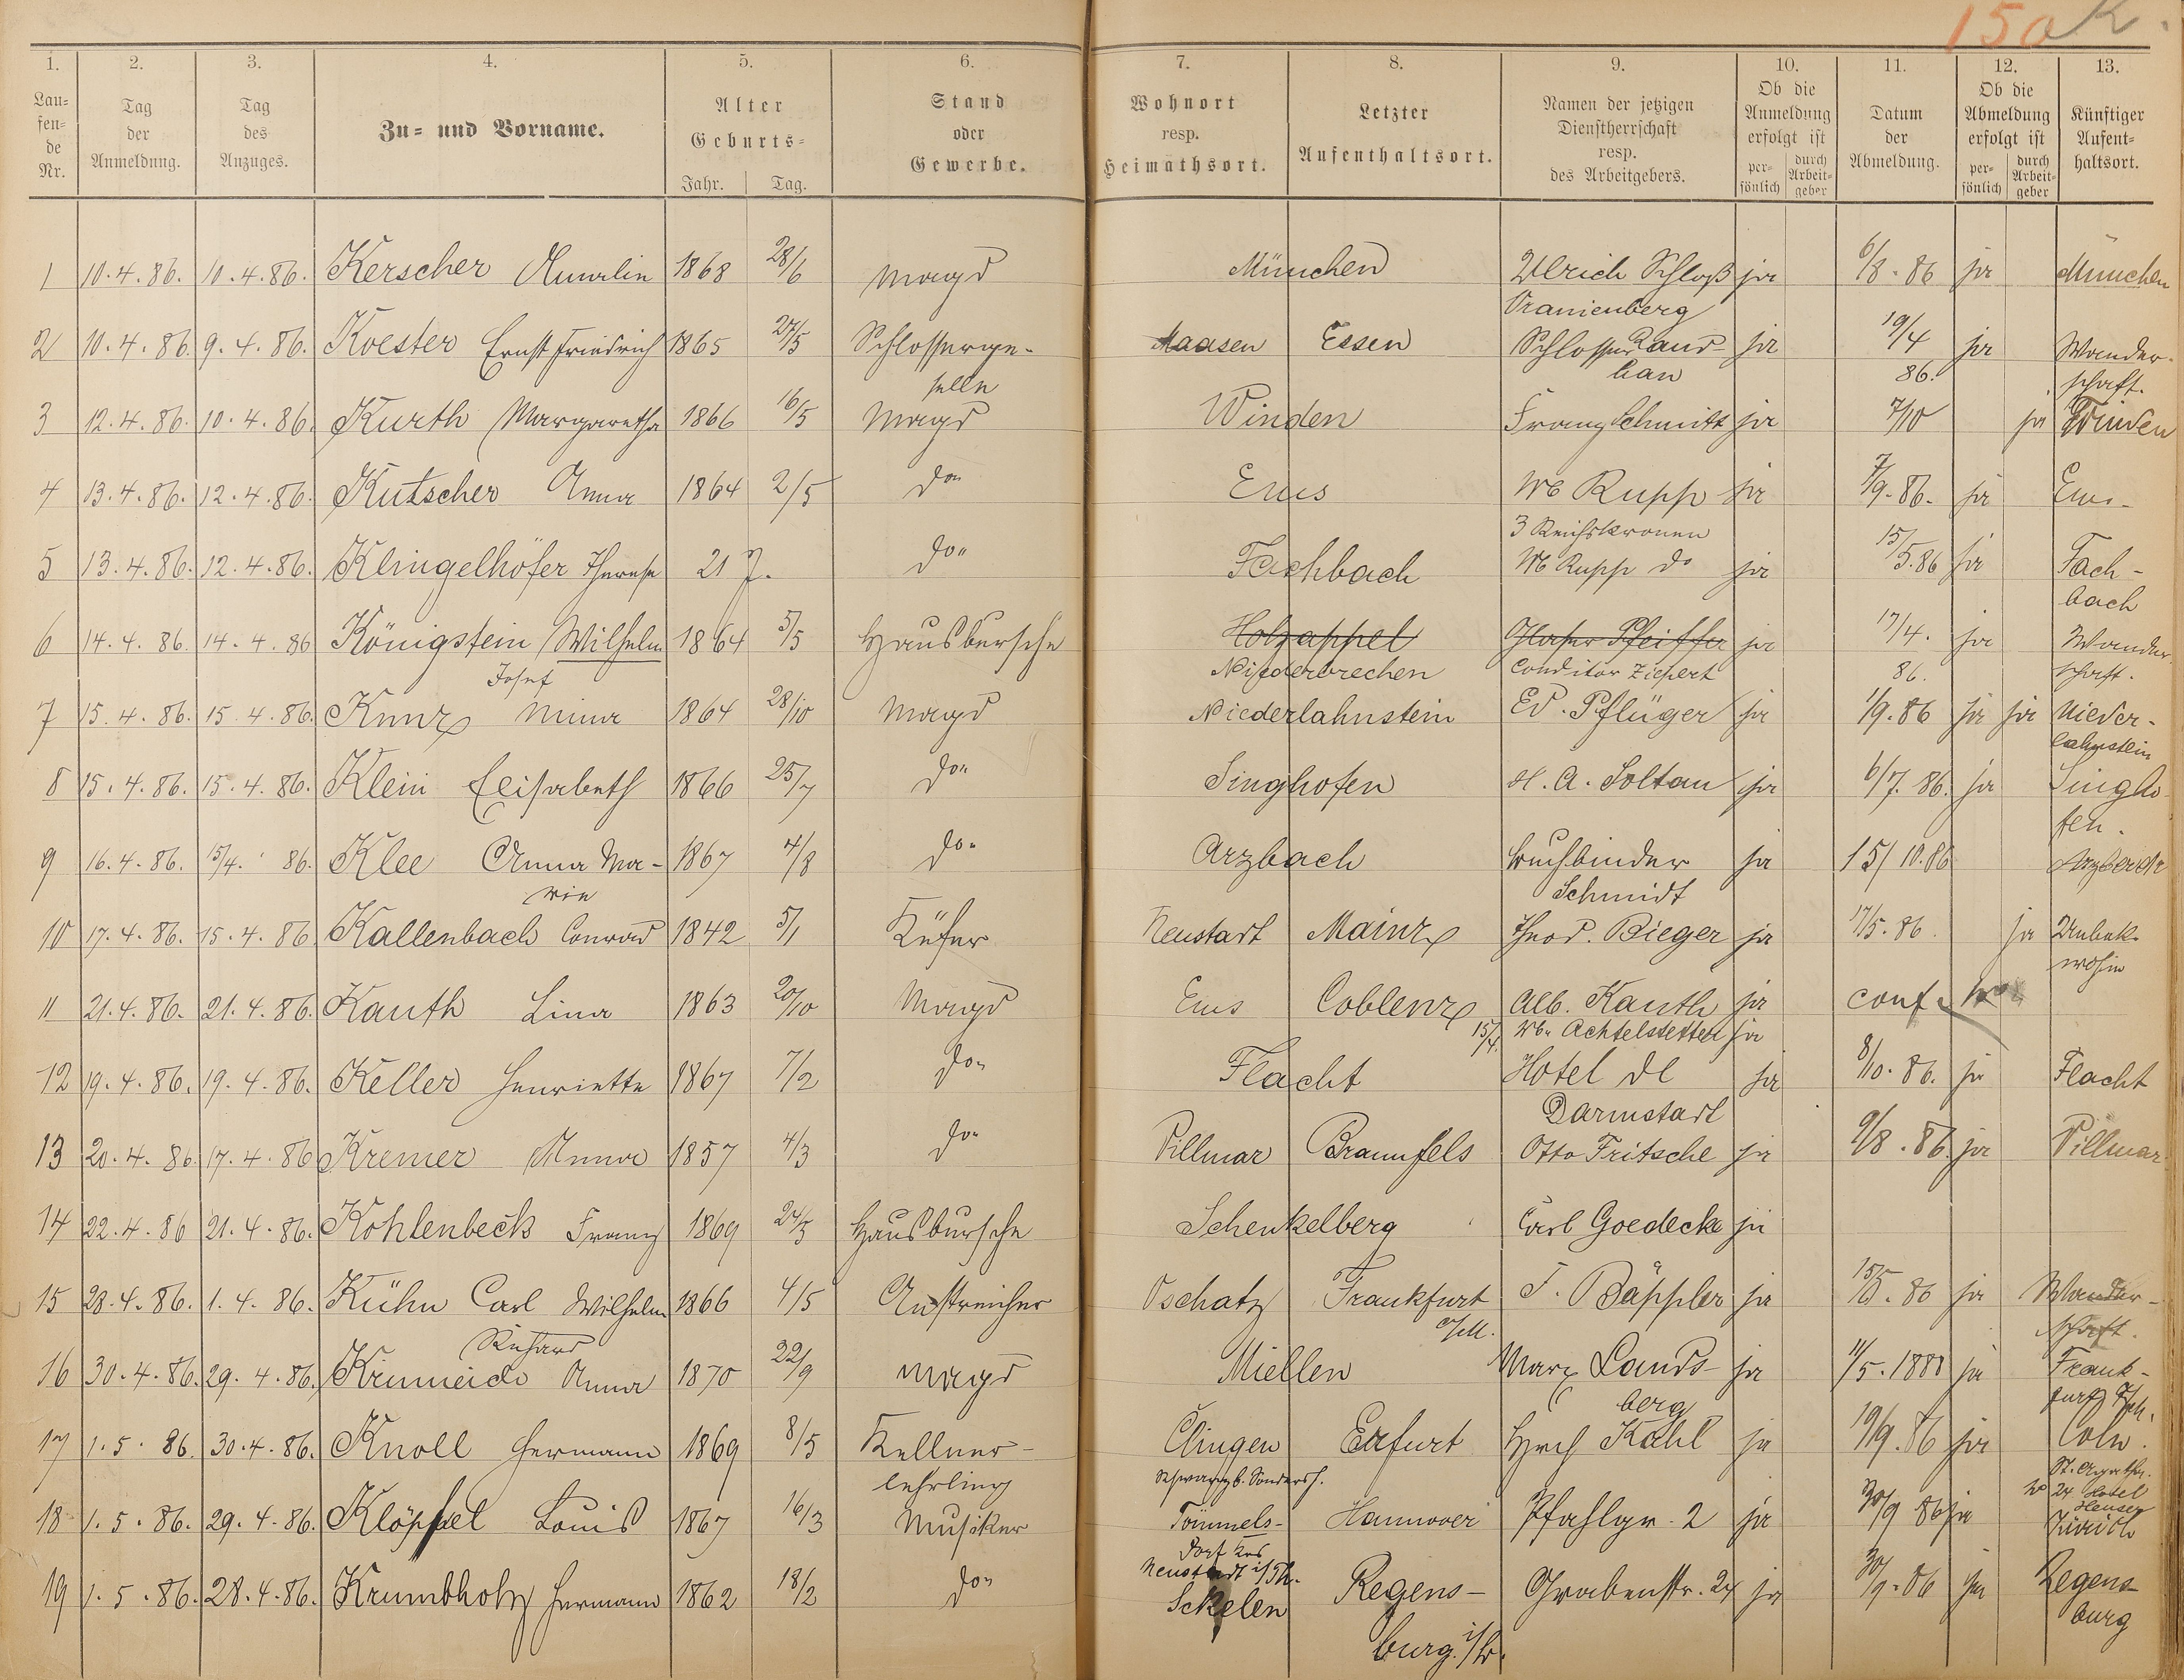 150 K.
1. 2. 3. 4. 5. 6. 7. 8. 9. 10. 11. 12. 13.
Lau-
fen-
de
Nr.
Tag
der
Anmeldung.
Tag
des
Anzuges.
Zu- und Vorname.
Alter
Geburts-
Jahr. Tag.
Stand
oder
Gewerbe.
Wohnort
resp.
Heimathsort.
Letzter
Aufenthaltsort.
Namen der jetzigen
Dienstherrschaft
resp.
des Arbeitgebers.
Ob die
Anmeldung
erfolgt ist
per-
sönlich
durch
Arbeit-
geber
Datum
der
Abmeldung.
Ob die
Abmeldung
erfolgt ist
per-
sönlich
durch
Arbeit-
geber
Künftiger
Aufent-
haltsort.
1 10.4.86. 10.4.86. Kerscher 1868 28/6 Magd München Ulrich Schloß ja 6/8.86 ja München
Oranienberg
2 10.4.86. 9.4.86. Koester Ernst Friedrich 1865 27/5 Schlosserge- Maasen Essen Schlosser ja 19/4 ja Wander-
selle 86. schaft.
3 12.4.86. 10.4.86. Kurth Margaretha 1866 16/5 Magd Winden Franz Schmitt ja 7/10 ja Winden
4 13.4.86. 12.4.86. Kutscher Anna 1864 2/5 do. Ems Wb Rupp ja 7/9.86. ja Ems.
3 Reichskronen
5 13.4.86. 12.4.86. Klingelhöfer Therese 21 J. do. Fachbach Wb Rupp do ja 15/5.86 ja Fach-
bach
6 14.4.86. 14.4.86 Königstein Wilhelm 1864 5/5 Hausbursche Holzappel Glaser Pfeiffer ja 17/4. ja Wander
Josef Niederbrechen Conditor Ziepert 86. schaft.
7 15.4.86. 15.4.86. Kunz Mina 1864 28/10 Magd Niederlahnstein Ed. Pflüger ja 1/9.86 ja ja Nieder-
lahnstein
8 15.4.86. 15.4.86. Klein Elisabeth 1866 25/7 do. Singhofen H. A. Soltau ja 6/7.86. ja Singho
fen.
9 16.4.86. 15/4. 86. Klee Anna Ma- 1867 4/8 do. Arzbach Buchbinder ja 15/10.86 Arzbach
rie Schmidt
10 17.4.86. 15.4.86 Kallenbach Conrad 1842 5/1 Küfer Neustadt Mainz Theod. Bieger ja 17/5.86. ja Unbek.
wohin
11 21.4.86. 21.4.86. Kauth Lina 1863 20/10 Magd Ems Coblenz Alb. Kauth ja conf.
15/4. Wb. Achtelstetter ja
12 19.4.86. 19.4.86. Keller Henriette 1867 7/2 do. Flacht Hotel de ja 8/10.86. ja Flacht
Darmstadt
13 20.4.86 17.4.86 Kremer Anna 1857 4/3 do. Villmar Braunfels Otto Fritsche ja 9/8.86. ja Villmar
14 22.4.86 21.4.86. Kohlenbeck Franz 1869 24/5 Hausbursche Schenkelberg Carl Goedecke ja
15 28.4.86. 1.4.86. Kühn Carl Wilhelm 1866 4/5 Anstreicher Oschatz Frankfurt J. Bäppler ja 15/5.86 ja Wander-
Richard a/M. schaft.
16 30.4.86. 29.4.86. Anna 1870 22/9 Magd Miellen Marx Lands- ja 11/5.1888 ja Frank-
berg furt
17 1.5.86. 30.4.86. Knoll Hermann 1869 8/5 Kellner- Clingen Erfurt Hrch Kahl ja 19/9.86 ja Coln.
lehrling Schwarzb. Sondersh. St. Agatha.
24 Hotel
18 1.5.86. 29.4.86. Klöppel Louis 1867 16/3 Musiker Tömmels- Hannover Pfahlgr. 2 ja 30/9 86 ja Zürich
dorf
Neustadt
19 1.5.86. 28.4.86. Krumbholz Hermann 1862 18/2 do. Sckelen Regens- Grabenstr. 24 ja 30/9.86 ja Regens-
burg burg